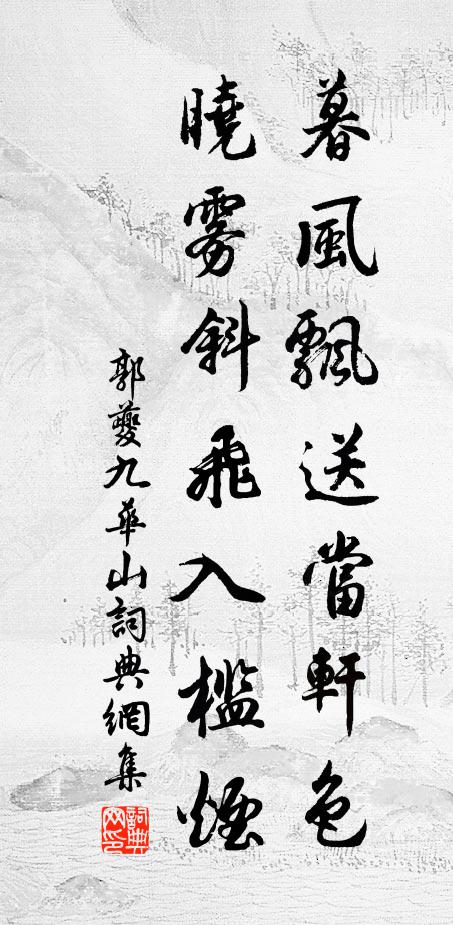 暮風飄送當軒色
曉雾斜飛入檻煙
郭夔九華山詞典網集
詞典网印